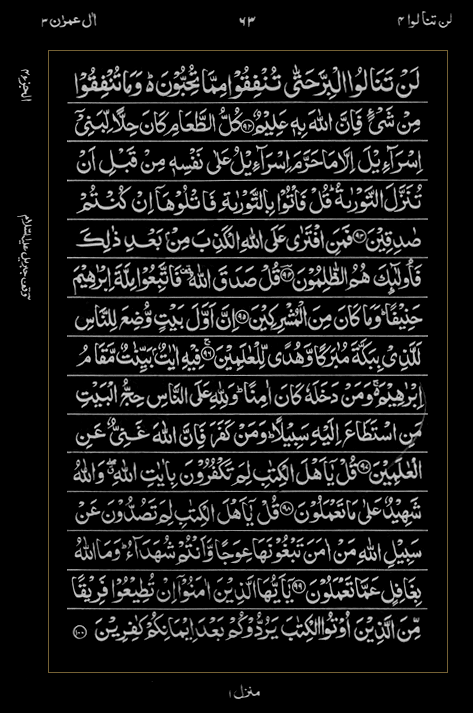 لن تنالوا ٤
٦٣
اٰل عمرٰن ٣
لَنْ تَنَالُوا الْبِرَّ حَتّٰى تُنْفِقُوْا مِمَّا تُحِبُّوْنَ ۬ؕ وَمَا تُنْفِقُوْا
مِنْ شَيْءٍ فَاِنَّ اللّٰهَ بِهٖ عَلِيْمٌ ﴿٩٢﴾ كُلُّ الطَّعَامِ كَانَ حِلًّا لِّبَنِيْۤ
اِسْرَآءِيْلَ اِلَّا مَا حَرَّمَ اِسْرَآءِيْلُ عَلٰى نَفْسِهٖ مِنْ قَبْلِ اَنْ
تُنَزَّلَ التَّوْرٰىةُ ؕ قُلْ فَاْتُوْا بِالتَّوْرٰىةِ فَاتْلُوْهَاۤ اِنْ كُنْتُمْ
صٰدِقِيْنَ ﴿٩٣﴾ فَمَنِ افْتَرٰى عَلَى اللّٰهِ الْكَذِبَ مِنْۢ بَعْدِ ذٰلِكَ
فَاُولٰٓئِكَ هُمُ الظّٰلِمُوْنَ ﴿٩٤﴾ قُلْ صَدَقَ اللّٰهُ ۟ فَاتَّبِعُوْا مِلَّةَ اِبْرٰهِيْمَ
حَنِيْفًا ؕ وَمَا كَانَ مِنَ الْمُشْرِكِيْنَ ﴿٩٥﴾ اِنَّ اَوَّلَ بَيْتٍ وُّضِعَ لِلنَّاسِ
لَلَّذِيْ بِبَكَّةَ مُبٰرَكًا وَّهُدًى لِّلْعٰلَمِيْنَ ﴿٩٦﴾ فِيْهِ اٰيٰتٌۢ بَيِّنٰتٌ مَّقَامُ
اِبْرٰهِيْمَ ۬ۚ وَمَنْ دَخَلَهٗ كَانَ اٰمِنًا ؕ وَلِلّٰهِ عَلَى النَّاسِ حِجُّ الْبَيْتِ
مَنِ اسْتَطَاعَ اِلَيْهِ سَبِيْلًا ؕ وَمَنْ كَفَرَ فَاِنَّ اللّٰهَ غَنِيٌّ عَنِ
الْعٰلَمِيْنَ ﴿٩٧﴾ قُلْ يٰۤاَهْلَ الْكِتٰبِ لِمَ تَكْفُرُوْنَ بِاٰيٰتِ اللّٰهِ ۖ وَاللّٰهُ
شَهِيْدٌ عَلٰى مَا تَعْمَلُوْنَ ﴿٩٨﴾ قُلْ يٰۤاَهْلَ الْكِتٰبِ لِمَ تَصُدُّوْنَ عَنْ
سَبِيْلِ اللّٰهِ مَنْ اٰمَنَ تَبْغُوْنَهَا عِوَجًا وَّاَنْتُمْ شُهَدَآءُ ؕ وَمَا اللّٰهُ
بِغَافِلٍ عَمَّا تَعْمَلُوْنَ ﴿٩٩﴾ يٰۤاَيُّهَا الَّذِيْنَ اٰمَنُوْۤا اِنْ تُطِيْعُوْا فَرِيْقًا
مِّنَ الَّذِيْنَ اُوْتُوا الْكِتٰبَ يَرُدُّوْكُمْ بَعْدَ اِيْمَانِكُمْ كٰفِرِيْنَ ﴿١٠٠﴾
وقف جبريل عليه السلام
منزل ١